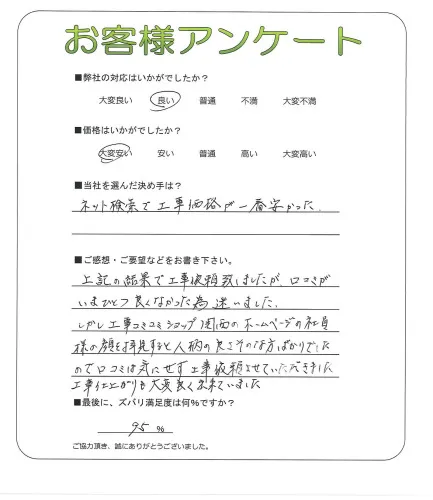 お客様アンケート
■弊社の対応はいかがでしたか?
大変良い 良い 普通 不満 大変不満
■価格はいかがでしたか?
大変安い 安い 普通 高い 大変高い
■当社を選んだ決め手は?
ネット検索で工事価格が一番安かった.
■ご感想・ご要望などをお書き下さい。
上記の結果で工事依頼致しましたが、口コミが
いまひとつ良くなかった為迷いました.
しかし工事コミコミショップ関西のホームページの社員
様の顔を拝見すると人柄の良さそうな方ばかりでした
ので口コミは気にせず工事依頼させていただきました
工事仕上がりも大変良く出来ていました
■最後に、ズバリ満足度は何%ですか?
95 %
ご協力頂き、誠にありがとうございました。